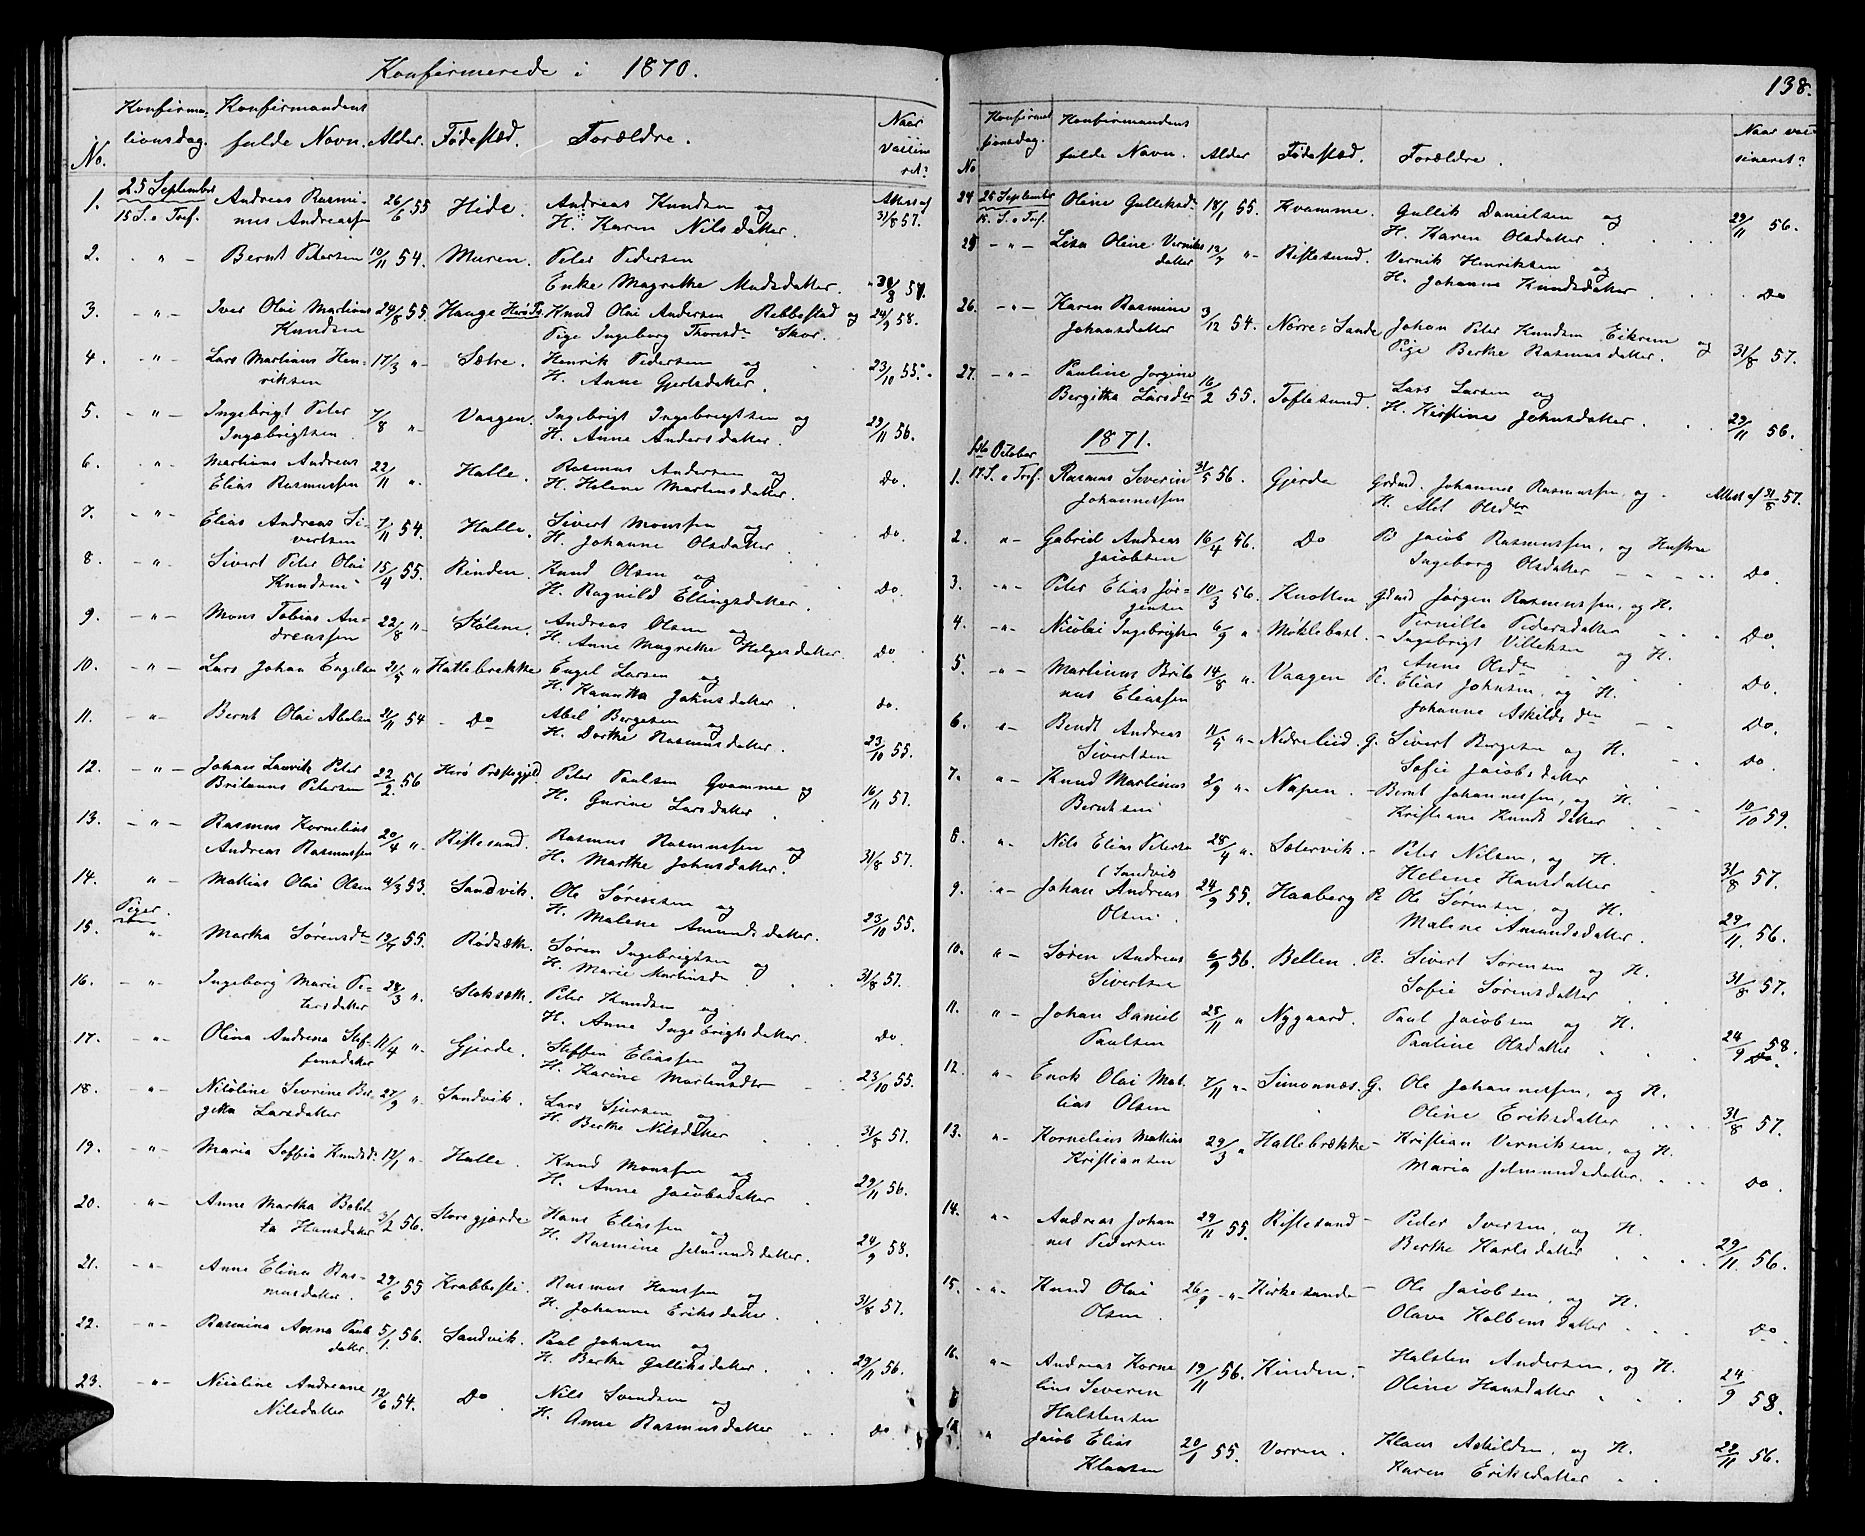 Konfirmerede i 1870.
No.
Konfirma-
tionsdag.
Konfirmandens
fulde Navn.
Alder.
Fødested.
Forældre.
Naar
vaccine
ret?
1. 25 September Andreas Rasmi- 26/6 55 Hide. Andreas Knudsen og Attest af
15 S. e Tref. nus Andreassen H. Karen Nilsdatter. 31/8 57.
2. " - Bernt Petersen 10/11 54. Muren. Peter Pedersen
Enke Magrethe Madsdatter. 31/8 57.
3. - " - Iver Olai Martinus 24/8 55. Hauge Herø Knud Olai Andersen Rebbestad og 24/9 58.
Knudsen Pige Ingeborg Thorsdr Skor.
4. - " - Lars Martinus Hen- 17/3 " - Sætre. Henrik Pedersen og 23/10 55.
riksen H. Anne Gjertsdatter.
5. - " - Ingebrigt Peter 7/8 " - Vaagen. Ingebrigt Ingebrigtsen og 29/11 56.
Ingebrigtsen. H. Anne Andersdatter.
6. " Martinus Andreas 22/11 " Halle. Rasmus Andersen og Do.
Elias Rasmussen H. Helene Martinsdatter.
7. - " - Elias Andreas Si- 7/11 54. Halle. Sivert Monssen og Do.
vertsen H. Johanne Olsdatter
8. " Sivert Peter Olai 15/4 55. Rinden. Knud Olsen og Do.
Knudsen H. Ragnild Ellingsdatter.
9. - " - Mons Tobias An- 22/8 " - Stølene. Andreas Olsen og Do.
dreassen H. Anne Magrethe Helgesdatter.
10. - " - Lars Johan Engelsen 21/5 " Hattlebrekke Engel Larsen og Do.
H. Kanutta Johnsdatter.
11. - " - Bernt Olai Abelsen 21/11 54 - Do Abel Bergesen og 23/10 55.
H. Dorthe Rasmusdatter.
12. - " - Johan Lauvitz Peter 22/2 56 Herø Præstegjeld Peter Paulsen Gvamme og 16/11 57.
Britanus Petersen H. Gurine Larsdatter.
13. - " - Rasmus Kornelius 20/4 " - Riftesund. Rasmus Rasmussen og 31/8 57.
Andreas Rasmussen H. Marthe Johnsdatter.
14. " Mathias Olai Olsen 4/3 53. Sandvik. Ole Sørensen og 23/10 55.
H. Malene Amundsdatter.
Piger.
15. " Martha Sørensdr 19/5 55. Rødsæth. Søren Ingebrigtsen og 31/8 57.
H. Marie Martinsdr
16. - " - Ingeborg Marie Pe- 24/3 ". Stoksæth. Peter Knudsen og Do.
tersdatter H. Anne Ingebrigtsdatter.
17. - " - Olina Andrena Stef- 11/4 " - Gjerde. Steffen Eliassen og 23/10 55.
fensdatter H. Karine Martinsdtr
18. - " - Nicoline Severine Ber- 27/9 ". Sandvik. Lars Sjursen og 31/8 57.
getha Larsdatter H. Berthe Nilsdatter
19. - " - Maria Soffia Knudsd. 12/1 " - Halle. Knud Monssen og 29/11 56.
H. Anne Jacobsdatter
20. - " - Anne Martha Bolet- 3/2 56. Storegjærde Hans Eliassen og 24/9 58.
ta Hansdatter H. Rasmine Jetmundsdatter.
21. - " - Anne Elina Ras- 29/6 55 Krabbesti. Rasmus Hanssen og 31/8 57.
musdatter. H. Johanne Eriksdatter.
22. - " - Rasmina Anna Pauls 5/1 56. Sandvik. Paul Johnsen og 29/11 56.
datter. H. Berthe Gulliksdatter.
23. - " - Nicoline Andreane 12/6 54. Do Nils Svendsen og Do.
Nilsdatter H. Anne Rasmusdatter
138.
No
Konfirmat
ionsdag.
Konfirmandens
fulde Navn.
Alder
Fødested.
Forældre.
Naar vac-
sineret?
24 25 September Oline Gulliksdr 18/1 55. Kvamme. Gullik Danielsen og 29/11 56.
15. S. e Tref. H. Karen Olsdatter.
25 - " - Lisa Oline Verniks 12/7 " - Riftesund. Vernik Henriksen og
datter H. Johanne Knudsdatter. Do
26. - " - Karen Rasmine 3/12 54. Nørre-Sande Johan Peter Knudsen Eikrem og
Johansdatter Pige Berthe Rasmusdatter. 31/8 57.
27. - " - Pauline Jorgine 16/2 55. Toftesund. Lars Larsen og
Bergitha Larsdtr H. Kirstine Johnsdatter. 29/11 56.
1871.
October
1. 17 S. e Tref. Rasmus Severin 31/5 56. Gjerde Grdmd. Johannes Rasmussen og Attest af 31/8 57.
Johannessen H. Alet Olsdtr
2. " - Gabriel Andreas 16/4 56. Do Jacob Rasmussen, og Hustru
Jacobsen Ingeborg Olsdatter Do.
3. " - Peter Elias Jør- 10/3 56. Knotten Grdmd Jørgen Rasmussen, og H.
gensen Pernille Pedersdatter Do
4. - " - Nicolai Ingebrigtsen 6/9 " Møklebust - Ingebrigt Villeksen og H.
Anne Olsdr Do.
5 " - Martinus Brita 14/8 ". Vaagen R. Elias Johnsen, og H.
nus Eliassen Johanne Askildsdtr Do.
6. " - Bendt Andreas 11/5 " - Nedrelid. G. Sivert Bergesen og H.
Sivertsen Sofie Jacobsdatter Do
7. " - Knud Martinus 2/9 " - Napen. - Bernt Johannessen, og H. 10/10 59.
Berntsen Kristiane Knudsdatter
8. " - Nils Elias Petersen 28/4 ". Sætervik. - Peter Nilsen, og H.
(Sandvik Helene Hansdatter 31/8 57.
9. " - Johan Andreas 24/9 55. Haaberg R Ole Sørensen, og H.
Olsen. Malene Amundsdatter. 29/11. 56.
10. " - Søren Andreas 6/9 56. Bellen. R. Sivert Sørensen og H.
Sivertsen Sofie Sørensdatter 31/8 57.
11. " - Johan Daniel 28/11 " Nygaard. Paul Jacobsen og H.
Paulsen Pauline Olsdatter 24/9 58.
Do.
12. " - Enok Olai Mat- 7/11 " - Simonnæs. G. Ole Johannessen, og H.
tias Olsen Oline Eriksdatter 31/8 57.
13. " - Kornelius Mathias 29/3 " Hallebrække - Kristian Verniksen, og H.
Kristiansen Maria Jetmundsdatter. Do.
14. " - Andreas Johan 29/11 55. Riftesund - Peder Iversen, og H.
nes Pedersen Berthe Karlsdatter 29/11 56.
15. - " - Knud Olai 26/9 - " - Kirkesunde - Ole Jacobsen, og H.
Olsen. Olava Kolbensdatter Do.
16. " - Andreas Korne 19/11 56. Rinden. - Halsten Andersen, og H. 24/9 58.
lius Severin Oline Hansdatter
Halstensen
" Jacob Elias 20/1 55. Vorren. Klaus Askildsen, og H. 29/11 56.
Klausen Karen Eriksdatter